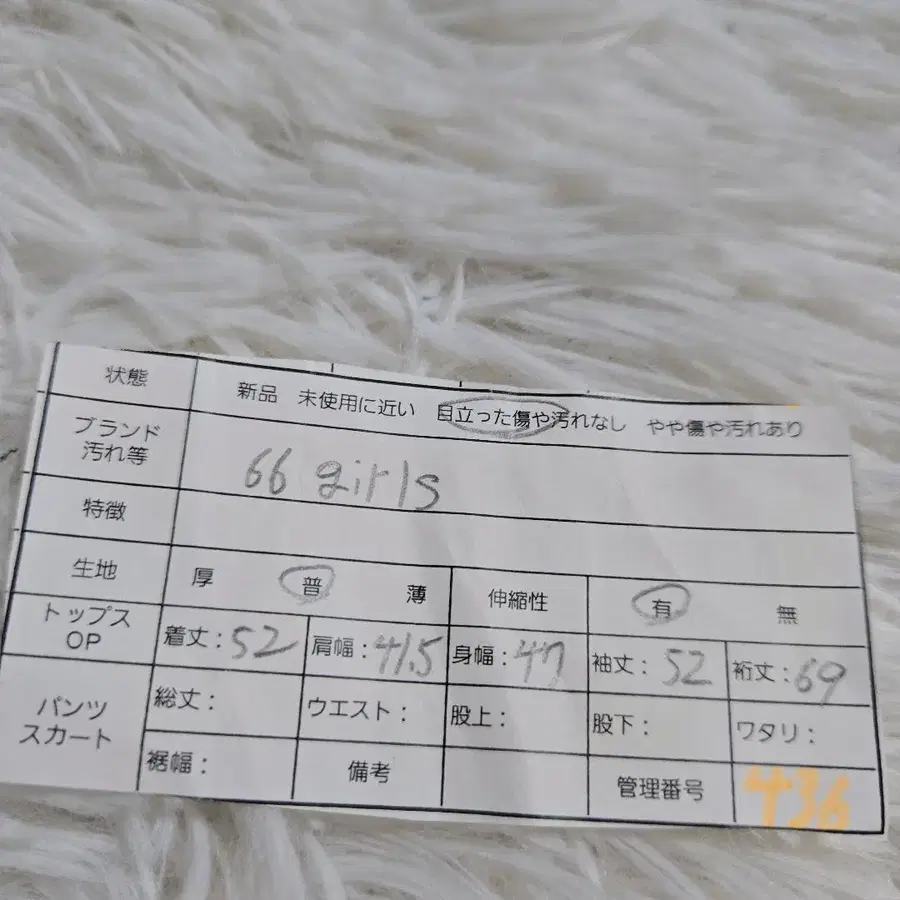 状態 新品 未使用に近い 目立った傷や汚れなし やや傷や汚れあり
ブランド
汚れ等 66 girls
特徴
生地 厚 普 薄 伸縮性 有 無
トップス
OP 着丈:52 肩幅:41.5 身幅:47 袖丈:52 裄丈:69
パンツ
スカート 総丈: ウエスト: 股上: 股下: ワタリ:
裾幅: 備考 管理番号 436